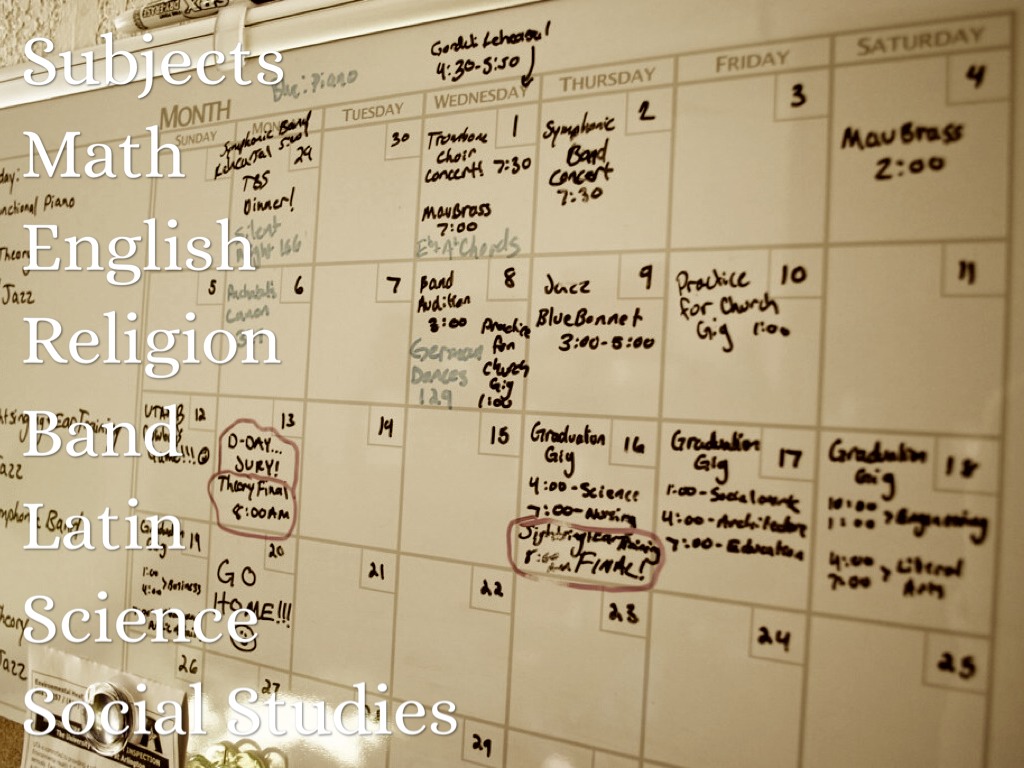 Subjects
Math
English
Religion
Band
Latin
Science
Social Studies
4:30-5:50
Piano
MONTH
SUNDAY
TUESDAY
WEDNESDAY
THURSDAY
FRIDAY
SATURDAY
Symphonic Band
29
Dinner!
Silent
30
1
Trombone
Choir
Concert! 7:30
MavBrass
7:00
Chords
2
Symphonic
Band
Concert
7:30
3
4
MavBrass
2:00
Piano
Theory
Jazz
5
6
Canon
7
8
Band
Audition
3:00
Practice
for
Church
Gig
1:00
German
Dances
129
9
Jazz
BlueBonnet
3:00-5:00
10
Practice
for Church
Gig 1:00
11
Ear Training
Jazz
12
13
D-DAY...
JURY!
Theory Final
8:00AM
14
15
16
Graduation
Gig
4:00-Science
7:00-Nursing
FINAL!
17
Graduation
Gig
4:00-Architecture
7:00-Education
18
Graduation
Gig
10:00
1:00 >Engineering
4:00
7:00 > Liberal
Arts
Band
19
1:00
4:00 >Business
20
GO
HOME!!!
21
22
23
24
25
Theory
Jazz
26
27
29
INSPECTION